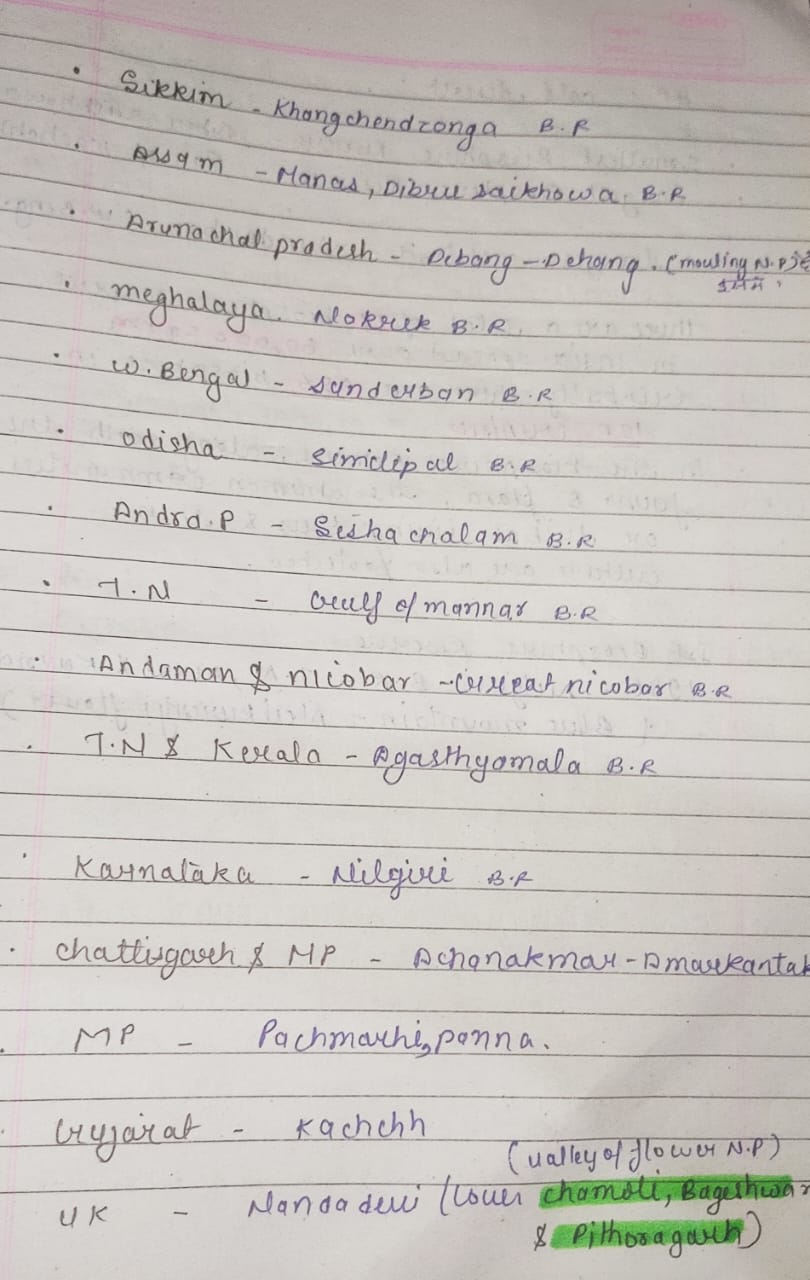 • Sikkim - Khangchendzonga B.R
• Assam - Manas, Dibru saikhowa B.R
• Arunachal pradesh - Dibang - Dehang . (mouling N.P) है
इसमें
• meghalaya. Nokrek B.R
• W. Bengal - Sunderban B.R
• odisha - Simlipal B.R
• Andra.P - Seshachalam B.R
• T.N - Gulf of mannar B.R
• Andaman & nicobar - Great nicobar B.R
• T.N & Kerala - Agasthyamala B.R
• Karnataka - Nilgiri B.R
• Chattisgarh & MP - Achanakmar - Amarkantak
• MP - Pachmarhi, panna.
• Gujarat - Kachchh
(valley of flower N.P)
UK - Nanda devi (Cover chamoli, Bageshwar
& Pithoragarh)